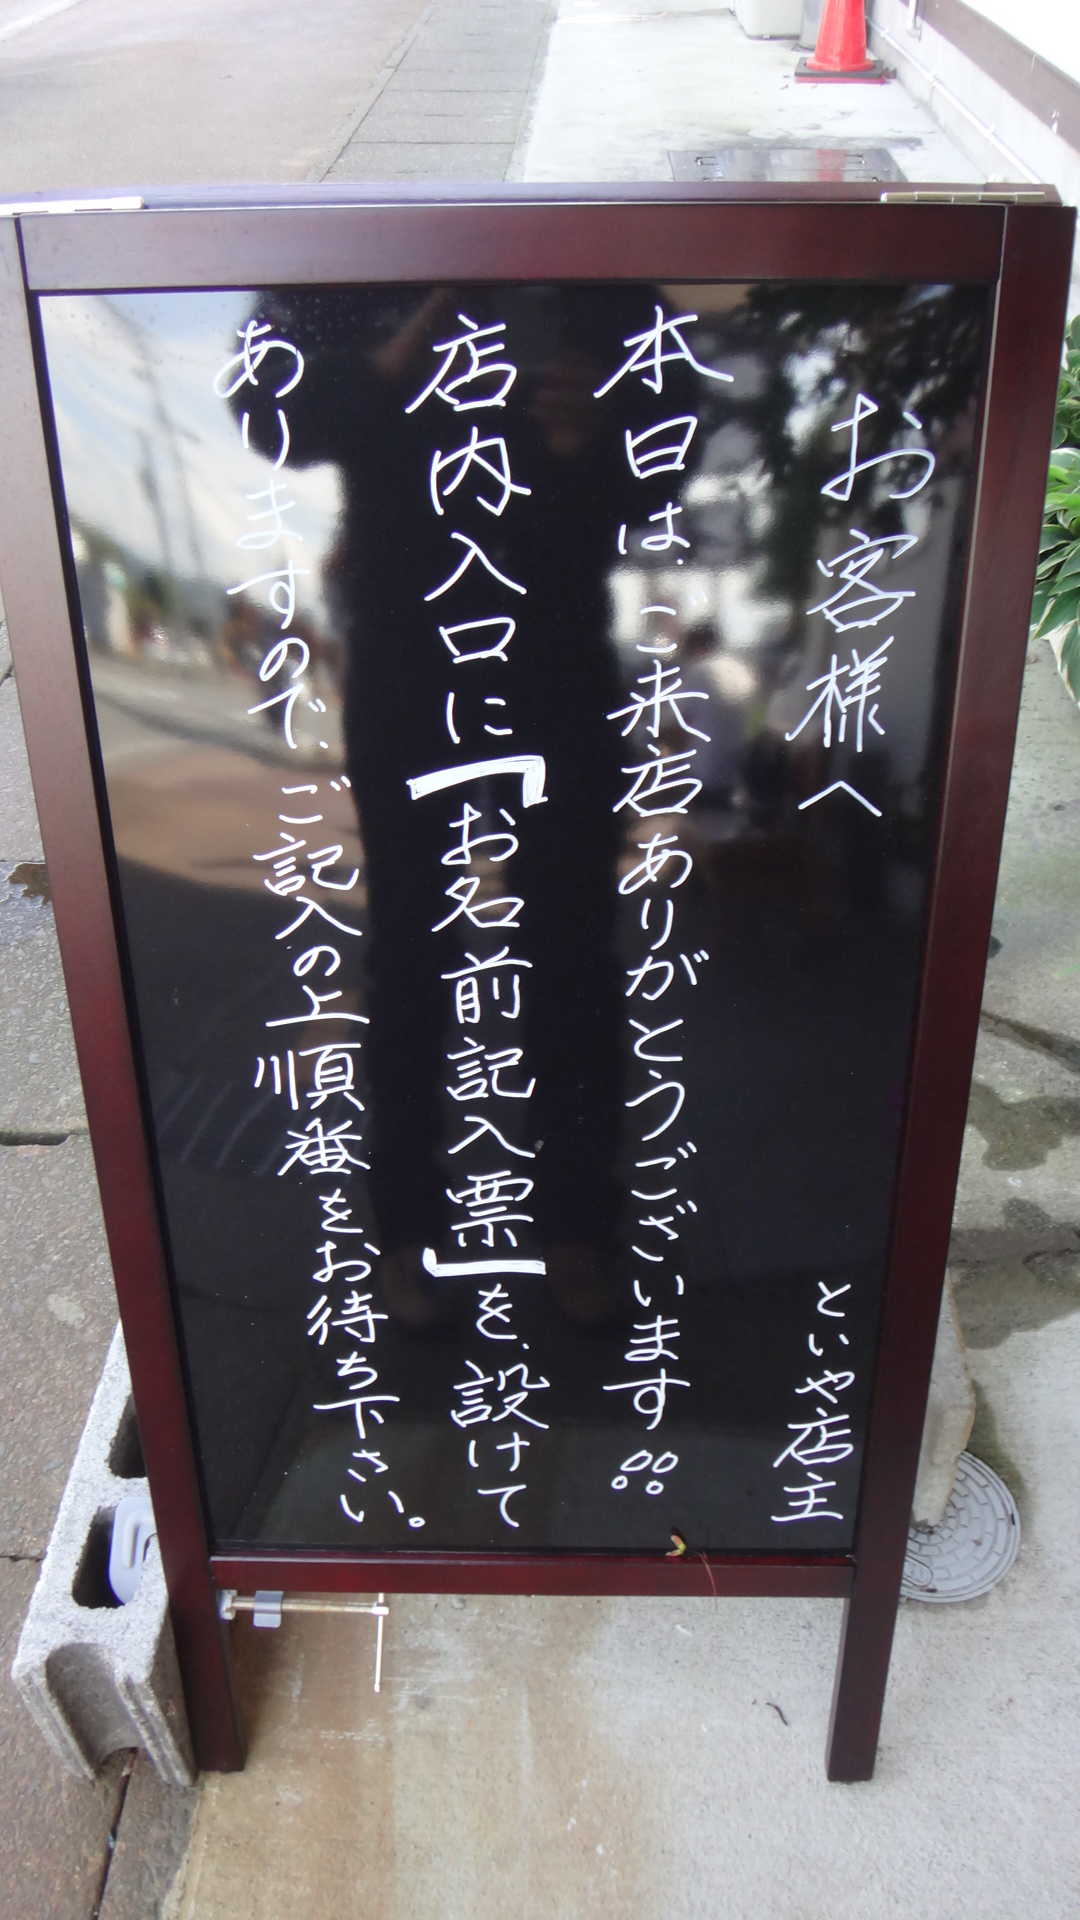 お客様へ　といや店主
本日は、ご来店ありがとうございます!!
店内入口に「お名前記入票」を、設けて
ありますので、ご記入の上順番をお待ち下さい。